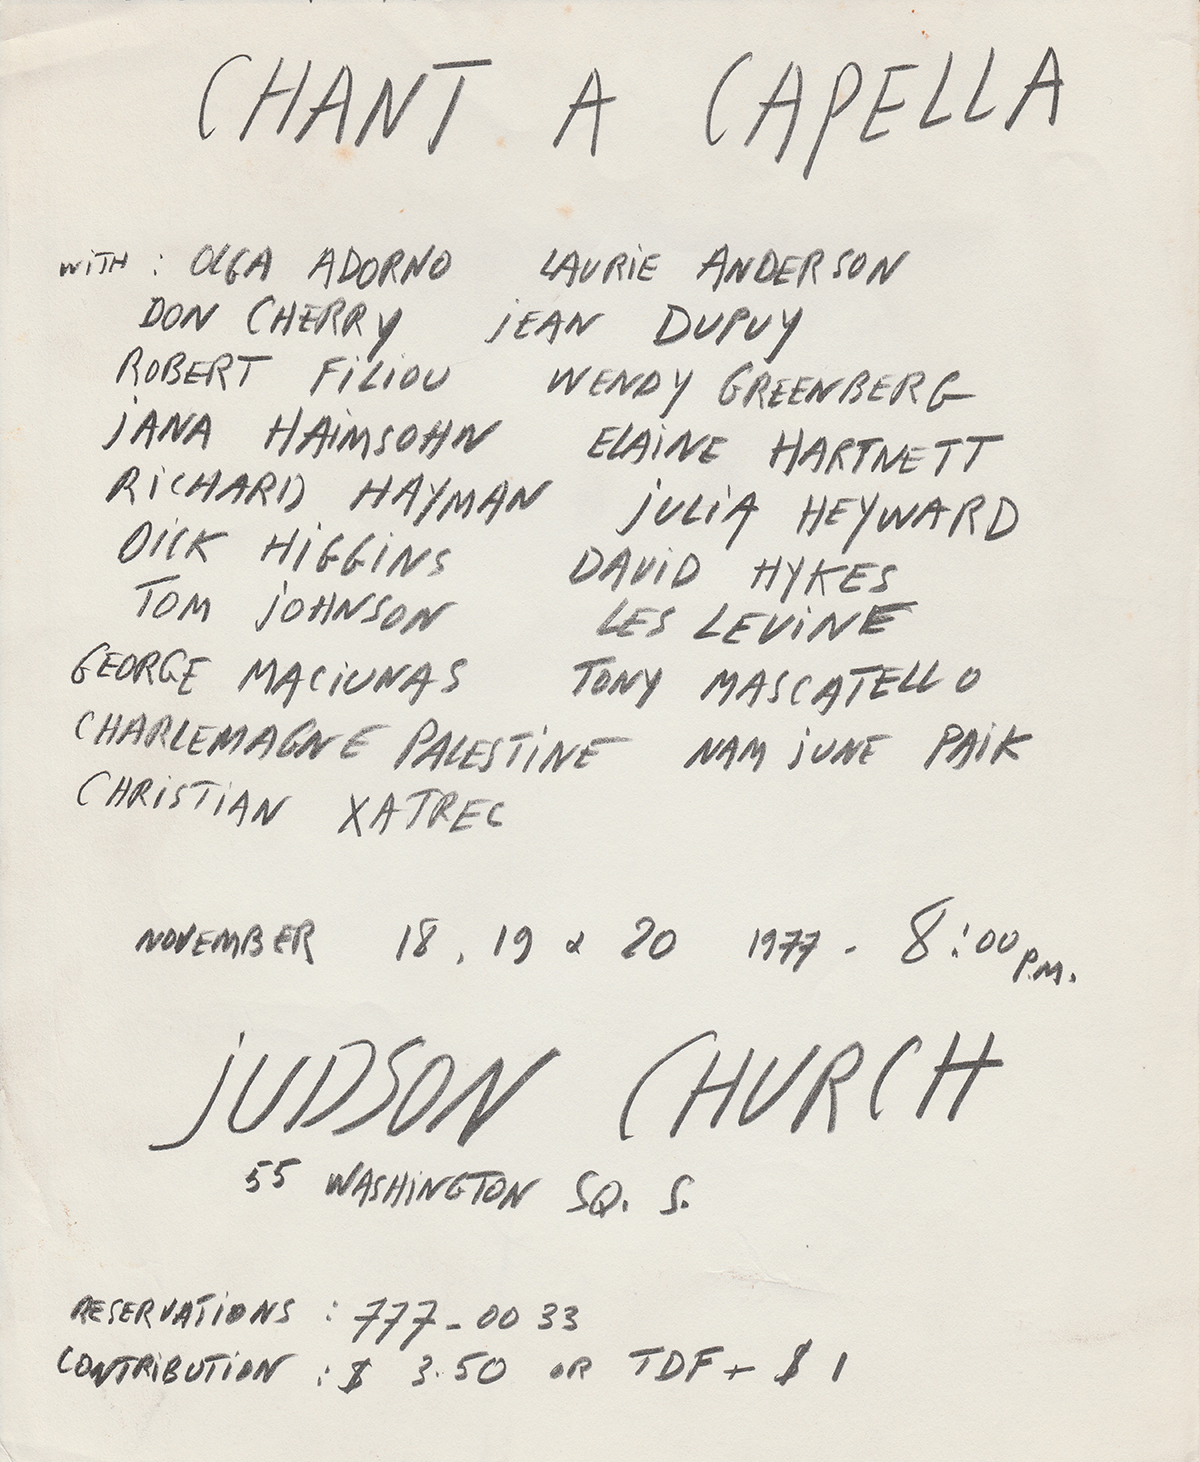 CHANT A CAPELLA
WiTH : OLGA ADORNO LAURiE ANDERSON
DON CHERRY jEAN DUPUY
ROBERT FiLiOU WENDY GREENBERG
jANA HAiMSOHN ELAiNE HARTNETT
RiCHARD HAYMAN jULiA HEYWARD
DiCK HiGGiNS DAViD HYKES
TOM jOHNSON LES LEViNE
GEORGE MACiUNAS TONY MASCATELLO
CHARLEMAGNE PALESTiNE NAM jUNE PAiK
CHRiSTiAN XATREC
NOVEMBER 18, 19 & 20 1977 - 8:00 P.M.
jUDSON CHURCH
55 WASHiNGTON SQ. S.
RESERVATiONS : 777-00 33
CONTRiBUTiON : $ 3.50 OR TDF + $ 1